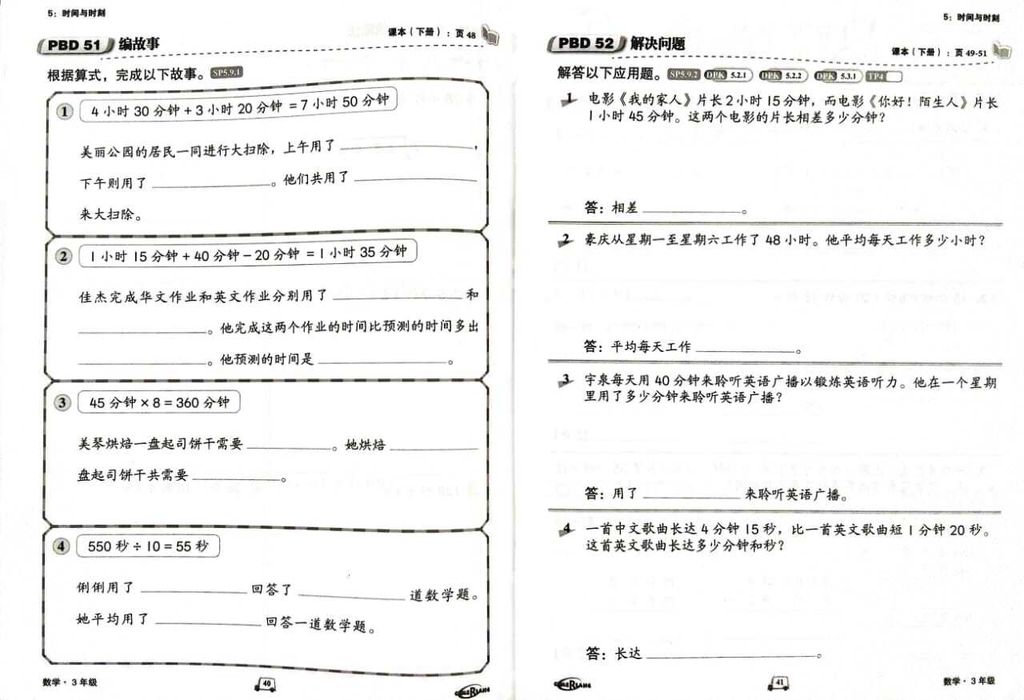 5：时间与时刻
PBD 51 编故事
课本（下册）：页 48
根据算式，完成以下故事。 SP5.9.1
1 4 小时 30 分钟 + 3 小时 20 分钟 = 7 小时 50 分钟
美丽公园的居民一同进行大扫除，上午用了 ____________，
下午则用了 ____________。他们共用了 ____________
来大扫除。
2 1 小时 15 分钟 + 40 分钟 − 20 分钟 = 1 小时 35 分钟
佳杰完成华文作业和英文作业分别用了 ____________ 和
____________。他完成这两个作业的时间比预测的时间多出
____________。他预测的时间是 ____________。
3 45 分钟 × 8 = 360 分钟
美琴烘焙一盘起司饼干需要 ____________。她烘焙 ____________
盘起司饼干共需要 ____________。
4 550 秒 ÷ 10 = 55 秒
俐俐用了 ____________ 回答了 ____________ 道数学题。
她平均用了 ____________ 回答一道数学题。
数学 · 3 年级
40
5：时间与时刻
PBD 52 解决问题
课本（下册）：页 49-51
解答以下应用题。 SP5.9.2 DPK 5.2.1 DPK 5.2.2 DPK 5.3.1 TP4
1 电影《我的家人》片长 2 小时 15 分钟，而电影《你好！陌生人》片长
1 小时 45 分钟。这两个电影的片长相差多少分钟？
答：相差 ____________。
2 豪庆从星期一至星期六工作了 48 小时。他平均每天工作多少小时？
答：平均每天工作 ____________。
3 宇泉每天用 40 分钟来聆听英语广播以锻炼英语听力。他在一个星期
里用了多少分钟来聆听英语广播？
答：用了 ____________ 来聆听英语广播。
4 一首中文歌曲长达 4 分钟 15 秒，比一首英文歌曲短 1 分钟 20 秒。
这首英文歌曲长达多少分钟和秒？
答：长达 ____________。
41
数学 · 3 年级